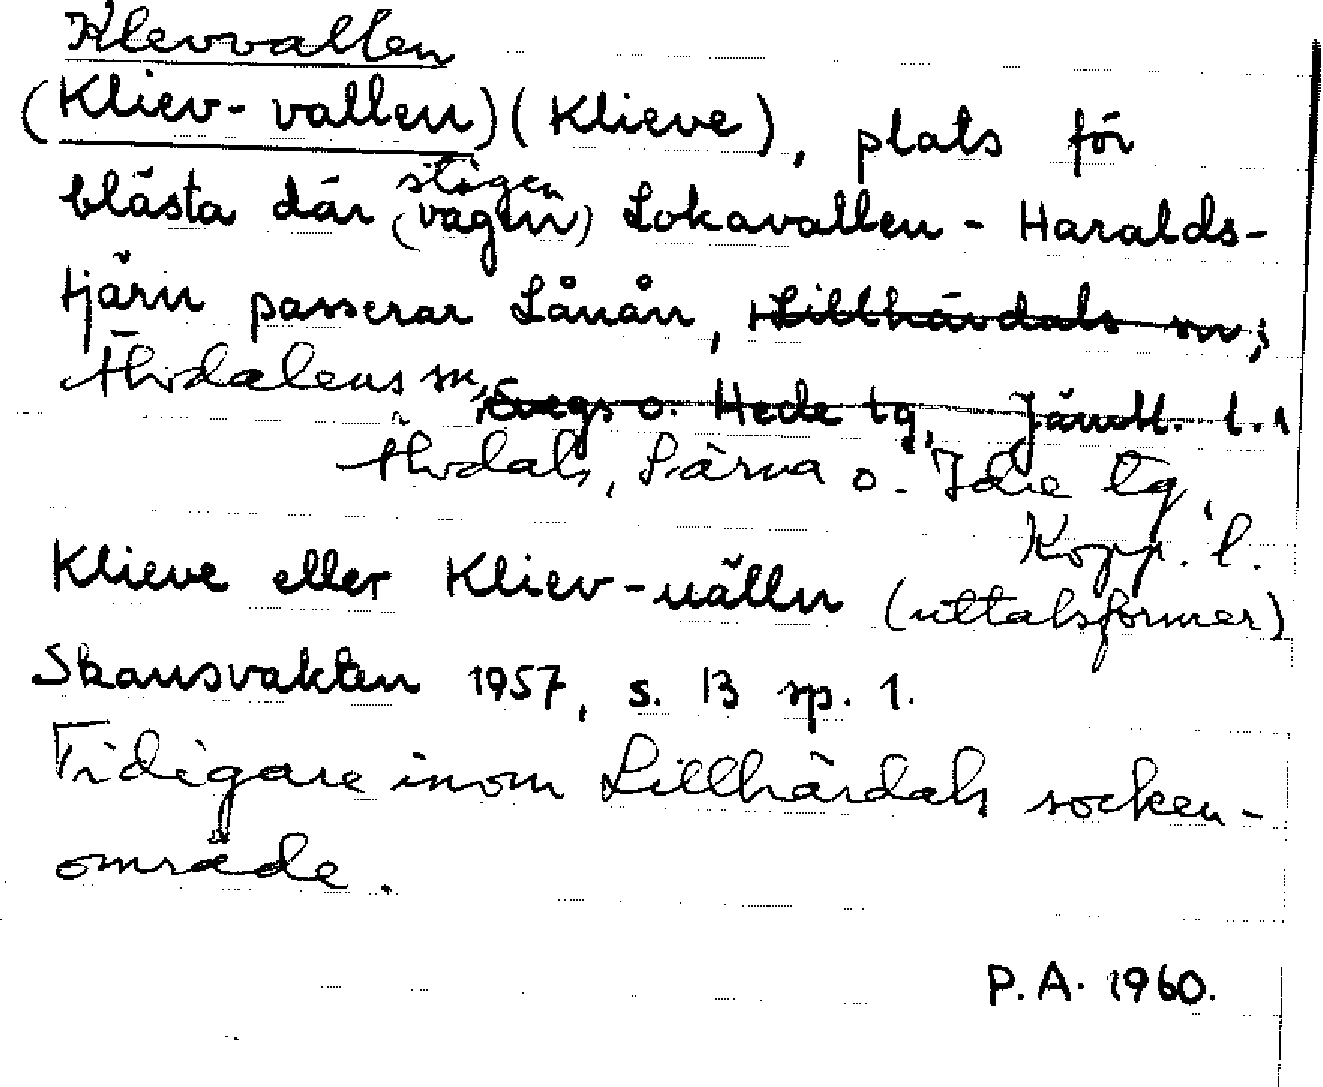 Klevvallen
(Kliev-vallen) (Klieve), plats för
blästa där stigen (vägen) Lokavallen - Haralds-
tjärn passerar Lånån, Lillhärdals sn,
Älvdalens sn, Svegs o. Hede tg, Jämtl. l.
Älvdals, Särna o. Idre tg,
Kopp. l.
Klieve eller Kliev-uälln (uttalsformer)
Skansvakten 1957, s. 13 sp. 1.
Tidigare inom Lillhärdals socken-
område.
P.A. 1960.